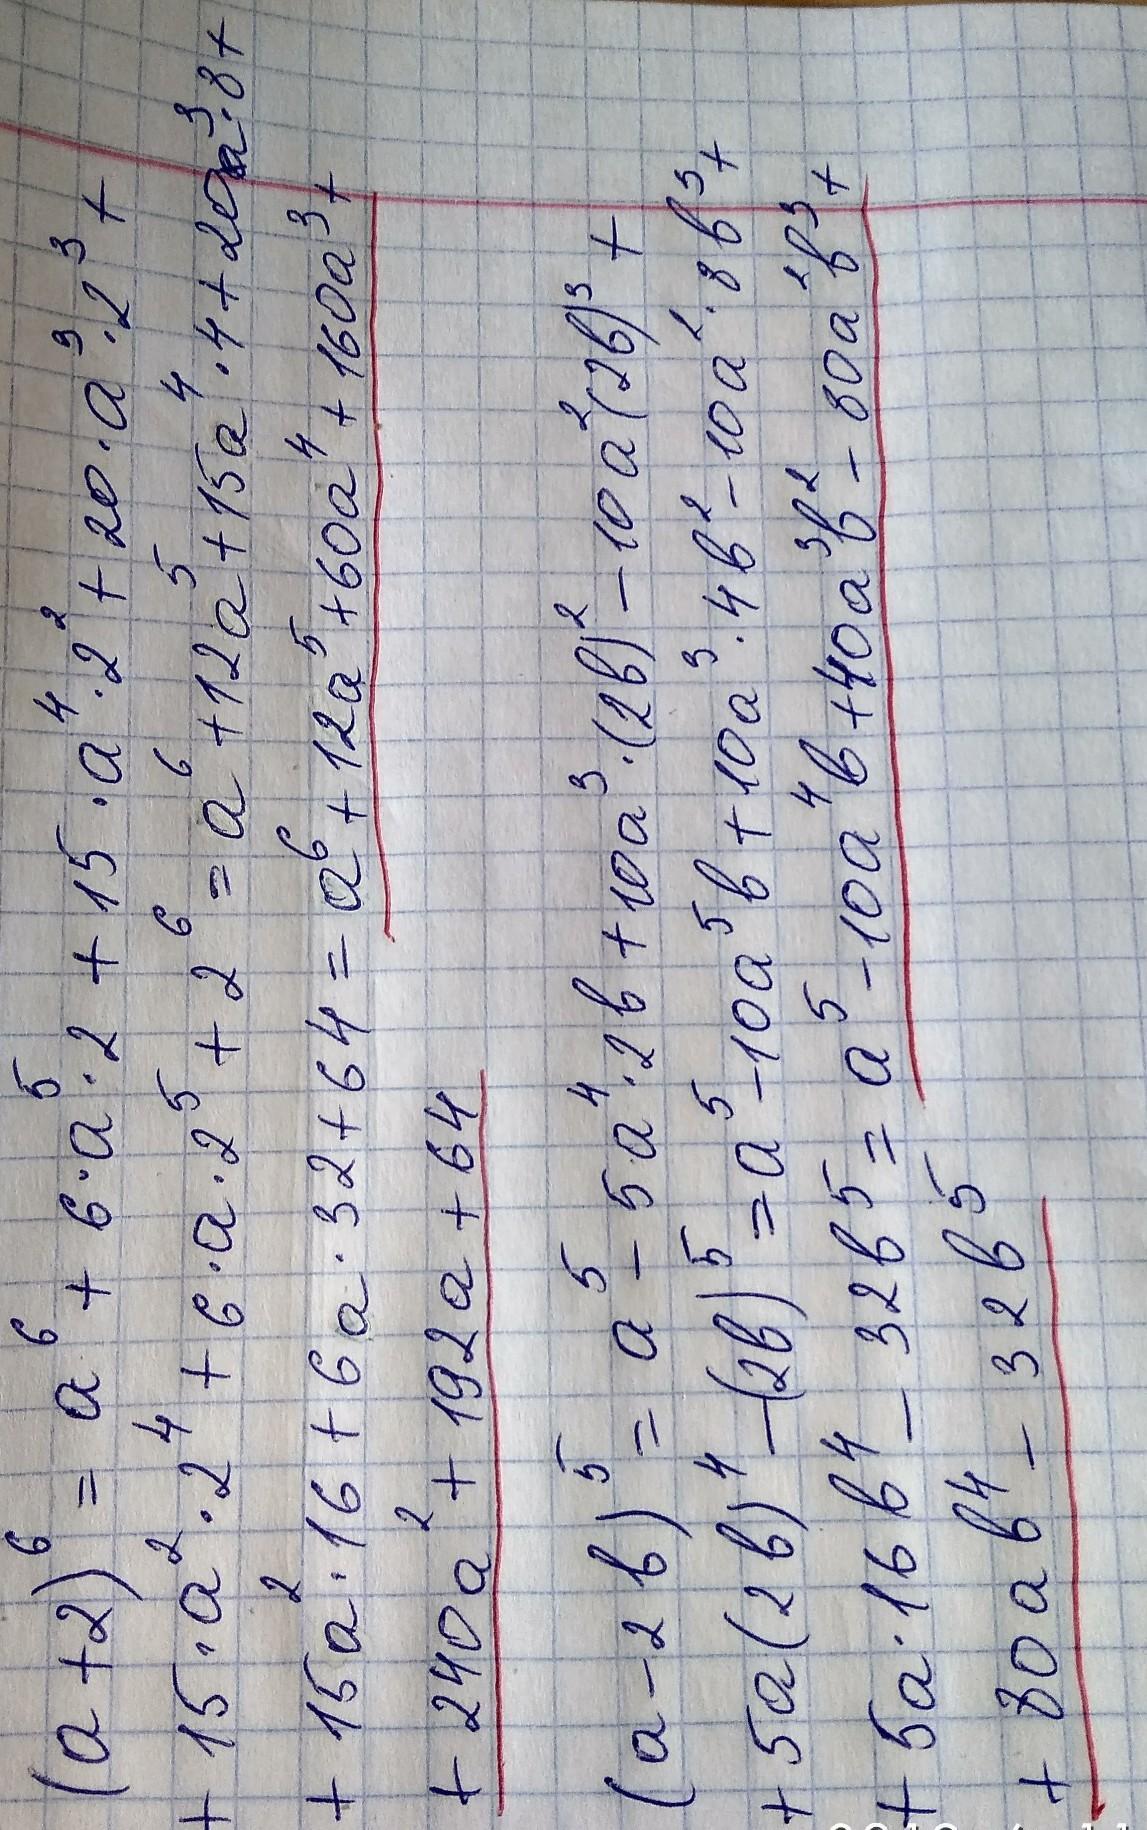 (a+2)⁶ = a⁶ + 6·a⁵·2 + 15·a⁴·2² + 20·a³·2³ +
+ 15·a²·2⁴ + 6·a·2⁵ + 2⁶ = a⁶ + 12a⁵ + 15a⁴·4 + 20a³·8 +
+ 15a²·16 + 6a·32 + 64 = a⁶ + 12a⁵ + 60a⁴ + 160a³ +
+ 240a² + 192a + 64
(a-2b)⁵ = a⁵ - 5a⁴·2b + 10a³·(2b)² - 10a²(2b)³ +
+ 5a(2b)⁴ - (2b)⁵ = a⁵ - 10a⁵b + 10a³·4b² - 10a²·8b³ +
+ 5a·16b⁴ - 32b⁵ = a⁵ - 10a⁴b + 40a³b² - 80a²b³ +
+ 80ab⁴ - 32b⁵